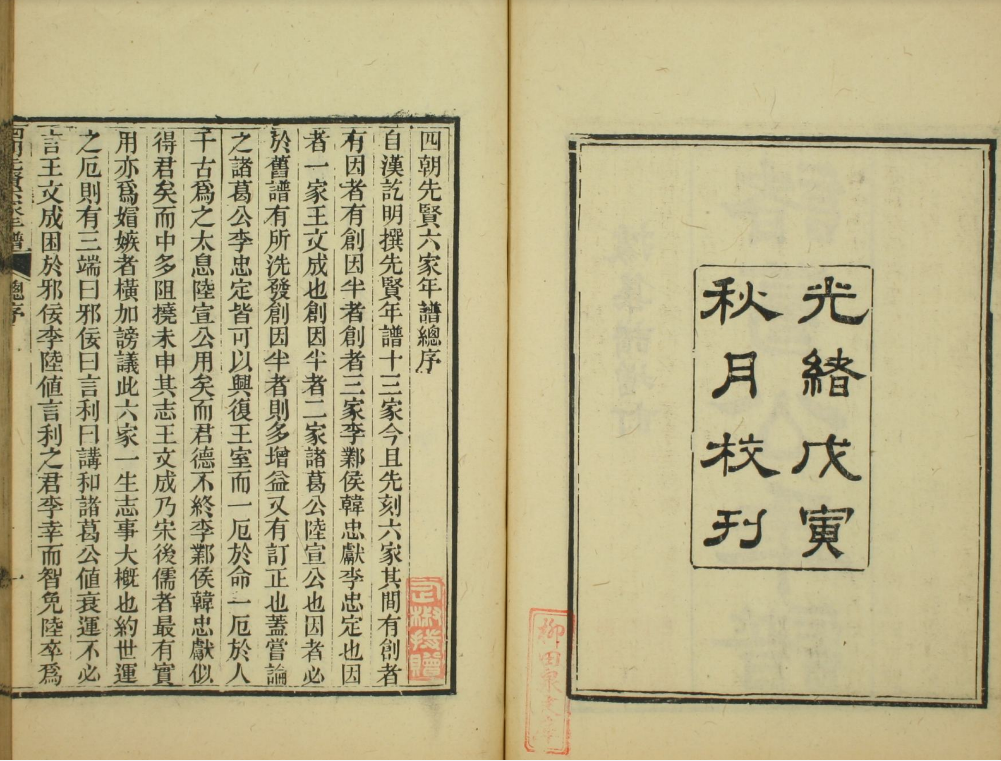 光緒戊寅
秋月校刊
四朝先賢六家年譜總序
自漢訖明撰先賢年譜十三家今且先刻六家其間有創者
有因者有創因半者創者三家李鄴侯韓忠獻李忠定也因
者一家王文成也創因半者二家諸葛公陸宣公也因者必
於舊譜有所洗發創因半者則多增益又有訂正也蓋嘗論
之諸葛公李忠定皆可以興復王室而一厄於命一厄於人
千古爲之太息陸宣公用矣而君德不終李鄴侯韓忠獻似
得君矣而中多阻撓未申其志王文成乃宋後儒者最有實
用亦爲媢嫉者橫加謗議此六家一生志事大概也約世運
之厄則有三端曰邪佞曰言利曰講和諸葛公値衰運不必
言王文成困於邪佞李陸値言利之君李幸而智免陸卒爲
四朝先賢六家年譜
總序
一
柳田泉文庫